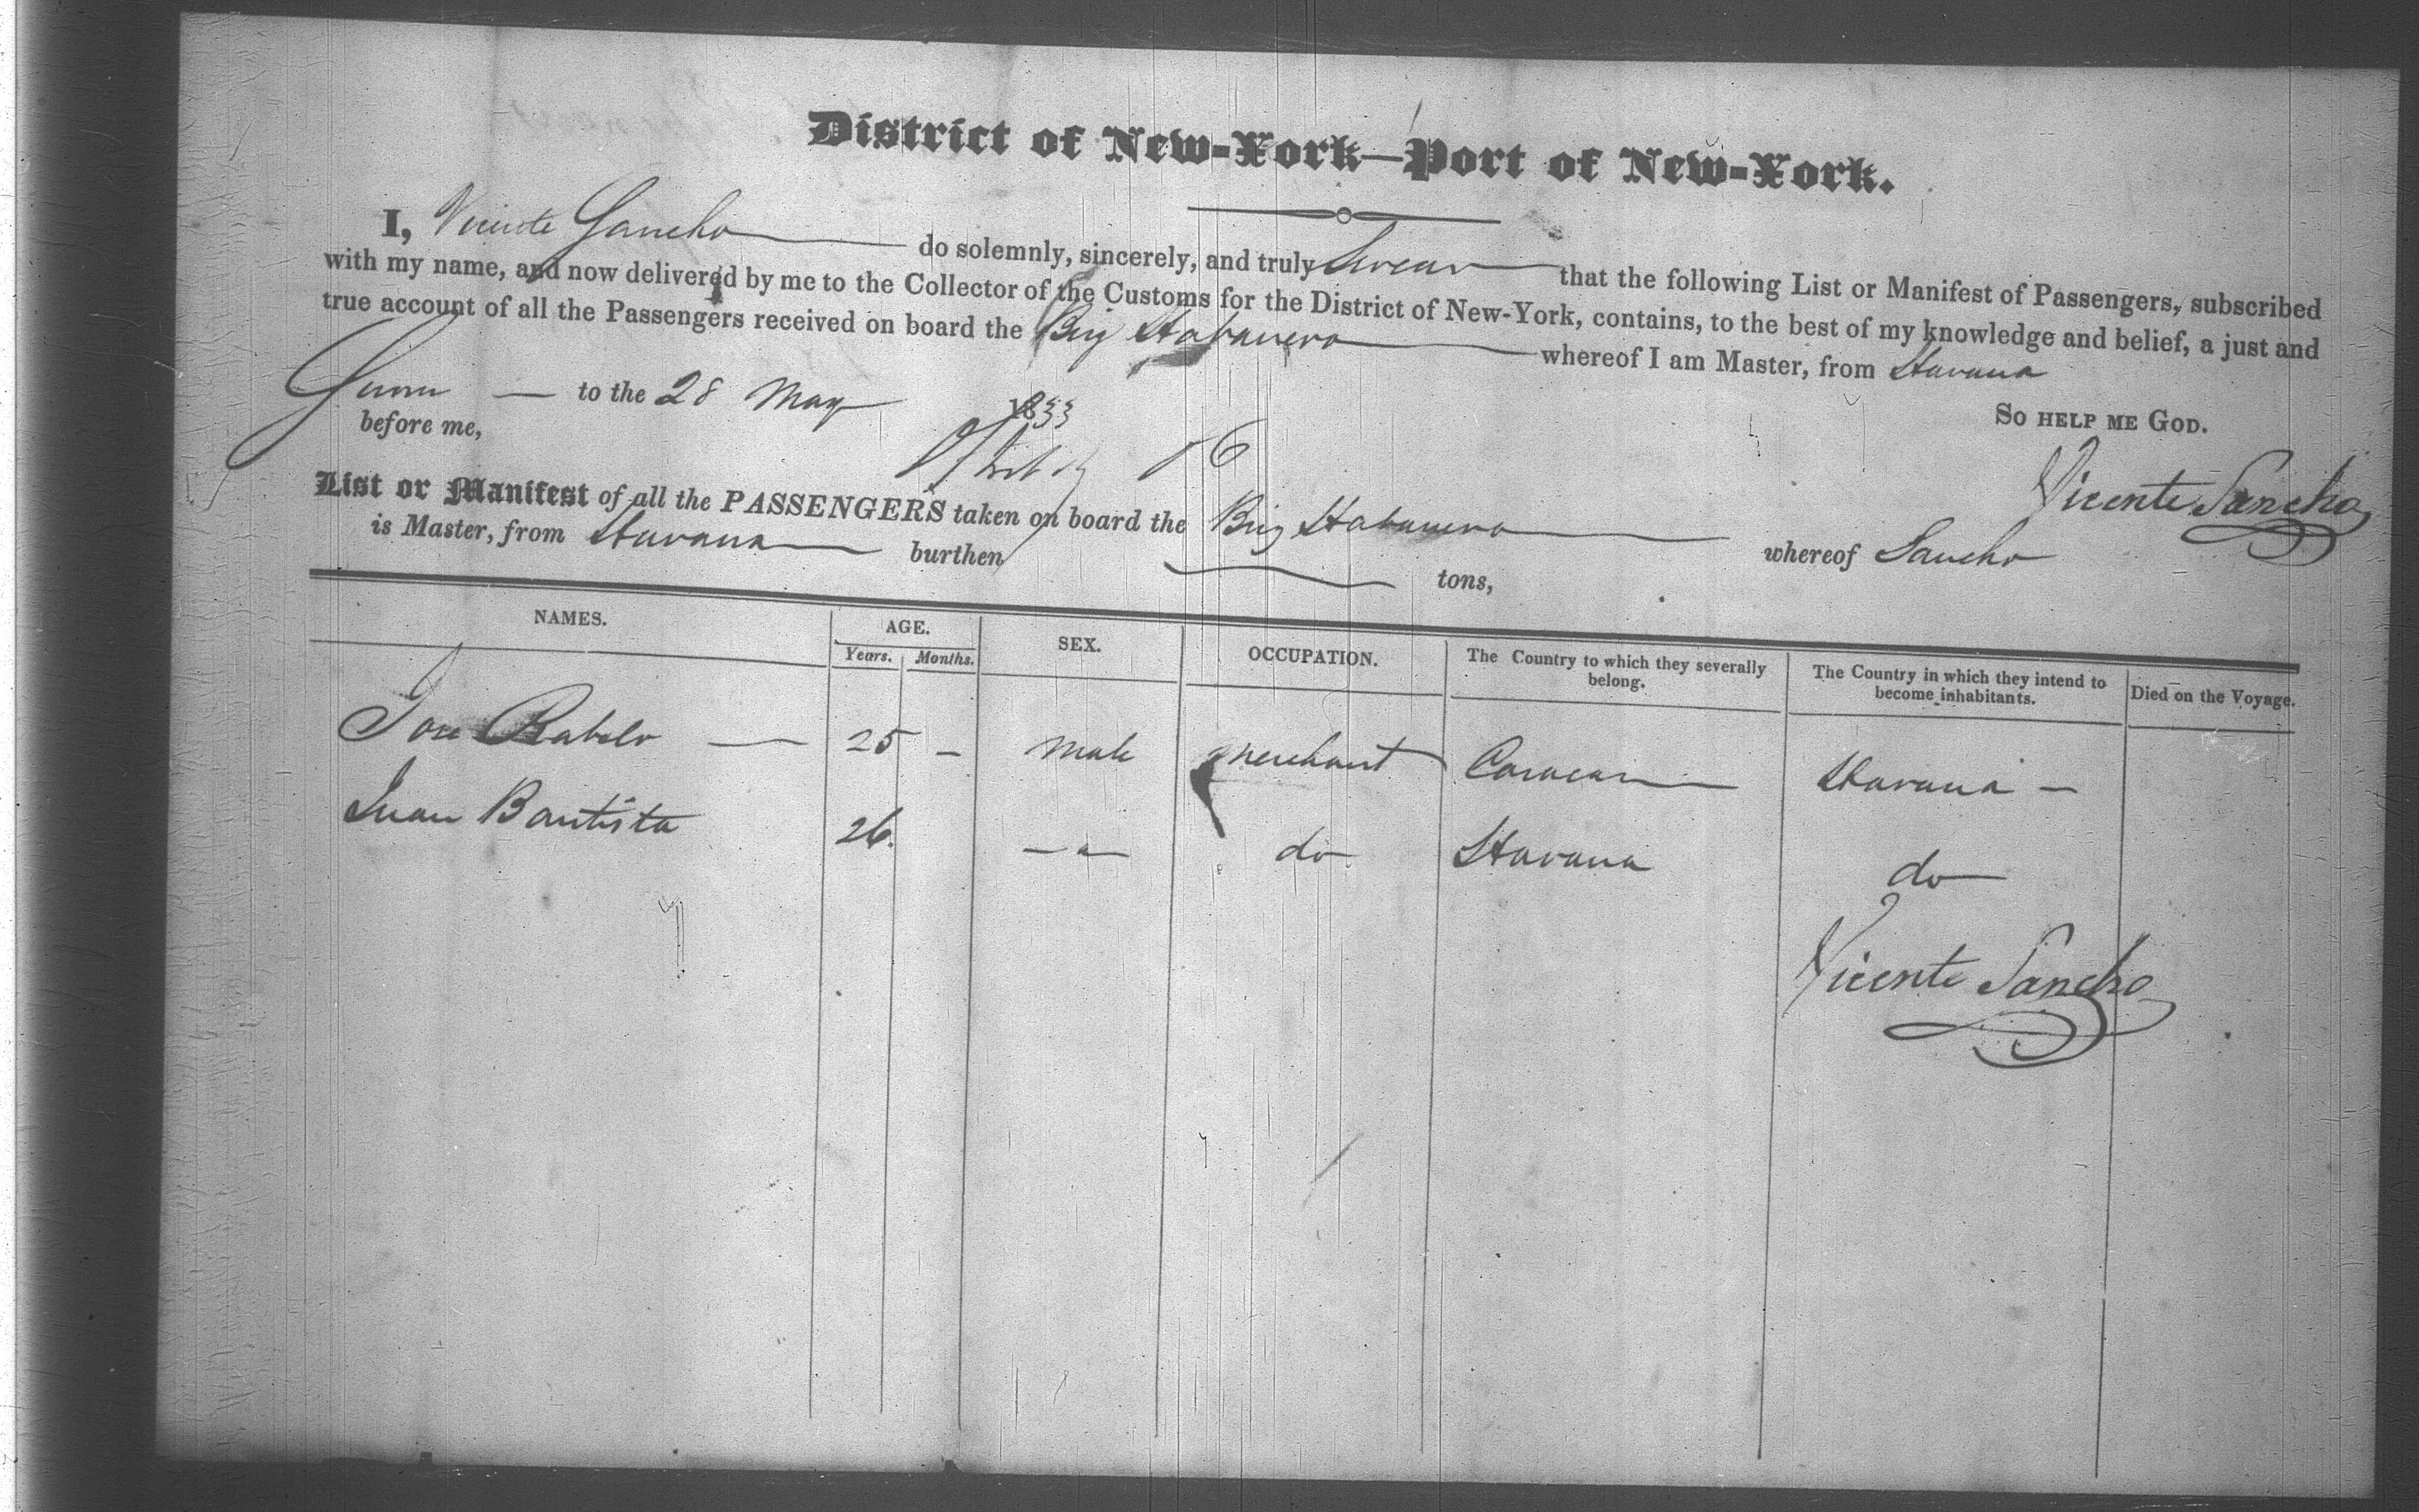 District of New-York—Port of New-York.
I, Vicente Sancho do solemnly, sincerely, and truly Swear that the following List or Manifest of Passengers, subscribed
with my name, and now delivered by me to the Collector of the Customs for the District of New-York, contains, to the best of my knowledge and belief, a just and
true account of all the Passengers received on board the Brig Habanero whereof I am Master, from Havana
Sworn — to the 28 May 1833
So help me God.
before me,
Vicente Sancho
List or Manifest of all the PASSENGERS taken on board the Brig Habanero whereof Sancho
is Master, from Havana burthen tons,
NAMES. AGE. SEX. OCCUPATION. The Country to which they severally belong. The Country in which they intend to become inhabitants. Died on the Voyage.
Years. Months.
Jose Rabelo — 25 — male merchant Caracas Havana —
Juan Bautista 26. — " — do Havana do
Vicente Sancho